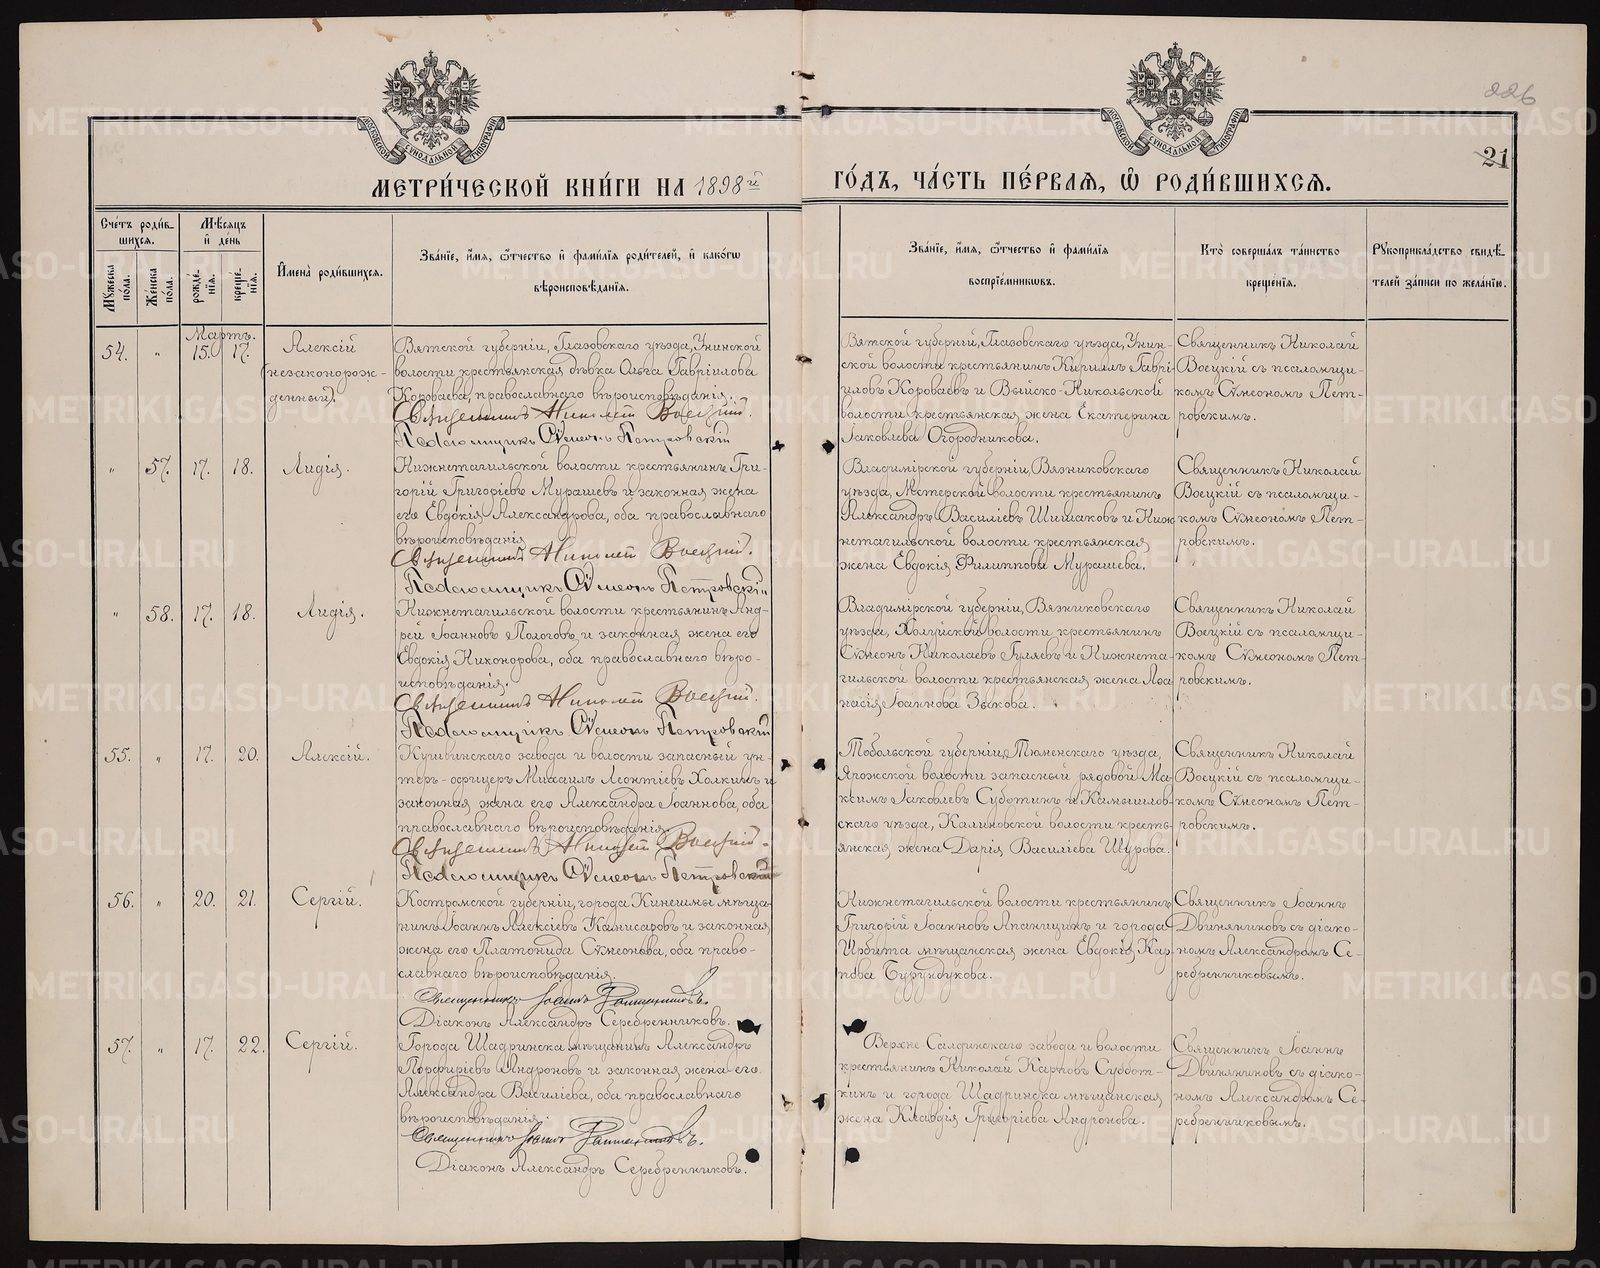 226
21
МЕТРИ́ЧЕСКОЙ КНИ́ГИ НА 1898й ГО́ДЪ, ЧА́СТЬ ПЕ́РВАѦ, Ѽ РОДИ́ВШИХСѦ.
Сче́тъ роди́в-
шихсѧ.
Мꙋ́жеска по́ла.
Же́нска по́ла.
Мѣ́сѧцъ
и҆ де́нь
рожде́-
нїѧ.
креще́-
нїѧ.
И҆мена̀ роди́вшихсѧ.
Зва́нїе, и҆́мѧ, ѻ҆́тчество и҆ фамѝлїѧ роди́телей, и҆ како́гѡ
вѣроисповѣ́данїѧ.
Зва́нїе, и҆́мѧ, ѻ҆́тчество и҆ фамѝлїѧ
воспрїе́мникѡвъ.
Кто̀ соверша́лъ та́инство
креще́нїѧ.
Рꙋкоприкла́дство свидѣ́-
телей за́писи по жела́нїю.
Мартъ.
54. " 15. 17.
Алексій
(незаконорож-
денный).
Вятской губерніи, Глазовскаго уѣзда, Унинской
волости крестьянская дѣвка Ольга Гавріилова
Короваева, православнаго вѣроисповѣданія.
Священникъ Николай Воецкій.
Псаломщикъ Сѵмеонъ Петровскій
Вятской губерніи, Глазовскаго уѣзда, Унин-
ской волости крестьянинъ Кириллъ Гаврі-
иловъ Короваевъ и Выйско-Никольской
волости крестьянская жена Екатерина
Іаковлева Огородникова.
Священникъ Николай
Воецкій съ псаломщи-
комъ Сѵмеономъ Пет-
ровскимъ.
" 57. 17. 18.
Лидія.
Нижнетагильской волости крестьянинъ Гри-
горій Григоріевъ Мурашевъ и законная жена
его Евдокія Александрова, оба православнаго
вѣроисповѣданія
Священникъ Николай Воецкій.
Псаломщикъ Сѵмеонъ Петровскій
Владимірской губерніи, Вязниковскаго
уѣзда, Мстерской волости крестьянинъ
Александръ Василіевъ Шишаковъ и Ниж-
нетагильской волости крестьянская
жена Евдокія Филиппова Мурашева.
Священникъ Николай
Воецкій съ псаломщи-
комъ Сѵмеономъ Пет-
ровскимъ.
" 58. 17. 18.
Лидія.
Нижнетагильской волости крестьянинъ Анд-
рей Іоанновъ Пологовъ и законная жена его
Евдокія Никонорова, оба православнаго вѣро-
исповѣданія.
Священникъ Николай Воецкій.
Псаломщикъ Сѵмеонъ Петровскій
Владимірской губерніи, Вязниковскаго
уѣзда, Холуйской волости крестьянинъ
Сѵмеонъ Николаевъ Гуляевъ и Нижнета-
гильской волости крестьянская жена Аѳа-
насія Іоаннова Зыкова.
Священникъ Николай
Воецкій съ псаломщи-
комъ Сѵмеономъ Пет-
ровскимъ.
55. " 17. 20.
Алексій.
Кушвинскаго завода и волости запасный ун-
теръ-офицеръ Михаилъ Леонтіевъ Холкинъ и
законная жена его Александра Іоаннова, оба
православнаго вѣроисповѣданія.
Священникъ Николай Воецкій.
Псаломщикъ Сѵмеонъ Петровскій
Тобольской губерніи, Тюменскаго уѣзда,
волости запасный рядовой Ма-
ксимъ Іаковлевъ Суботинъ и Камышлов-
скаго уѣзда, Калиновской волости кресть-
янская жена Дарія Василіева Шурова.
Священникъ Николай
Воецкій съ псаломщи-
комъ Сѵмеономъ Пет-
ровскимъ.
56. " 20. 21.
Сергій.
Костромской губерніи, города Кинешмы мѣща-
нинъ Іоаннъ Алексіевъ Комисаровъ и законная
жена его Платонида Сѵмеонова, оба право-
славнаго вѣроисповѣданія.
Священникъ Іоаннъ Двиняниновъ.
Діаконъ Александръ Серебренниковъ.
Нижнетагильской волости крестьянинъ
Григорій Іоанновъ Апаницинъ и города
Ирбита мѣщанская жена Евдокія Кар-
пова Бурундукова.
Священникъ Іоаннъ
Двиняниновъ съ діако-
номъ Александромъ Се-
ребренниковымъ.
57. " 17. 22.
Сергій.
Города Шадринска мѣщанинъ Александръ
Порфиріевъ Андроновъ и законная жена его
Александра Василіева, оба православнаго
вѣроисповѣданія.
Священникъ Іоаннъ Двиняниновъ.
Діаконъ Александръ Серебренниковъ.
Верхне-Салдинскаго завода и волости
крестьянинъ Николай Карповъ Суббот-
кинъ и города Шадринска мѣщанская
жена Клавдія Григоріева Андронова.
Священникъ Іоаннъ
Двиняниновъ съ діако-
номъ Александромъ Се-
ребренниковымъ.
METRIKI.GASO-URAL.RU